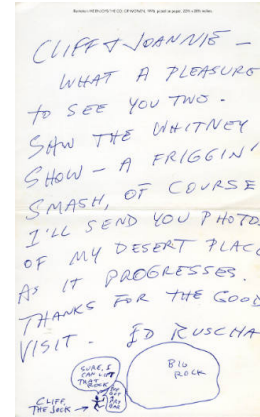 CLIFF + JOANNIE —
WHAT A PLEASURE
to SEE YOU TWO.
SAW THE WHITNEY
SHOW — A FRIGGIN'
SMASH, OF COURSE
I'LL SEND YOU PHOTOS
OF MY DESERT PLACE
AS IT PROGRESSES.
THANKS FOR THE GOOD
VISIT. ED RUSCHA
SURE, I
CAN LIFT
THAT
ROCK
BIG
ROCK
CLIFF,
THE JOCK